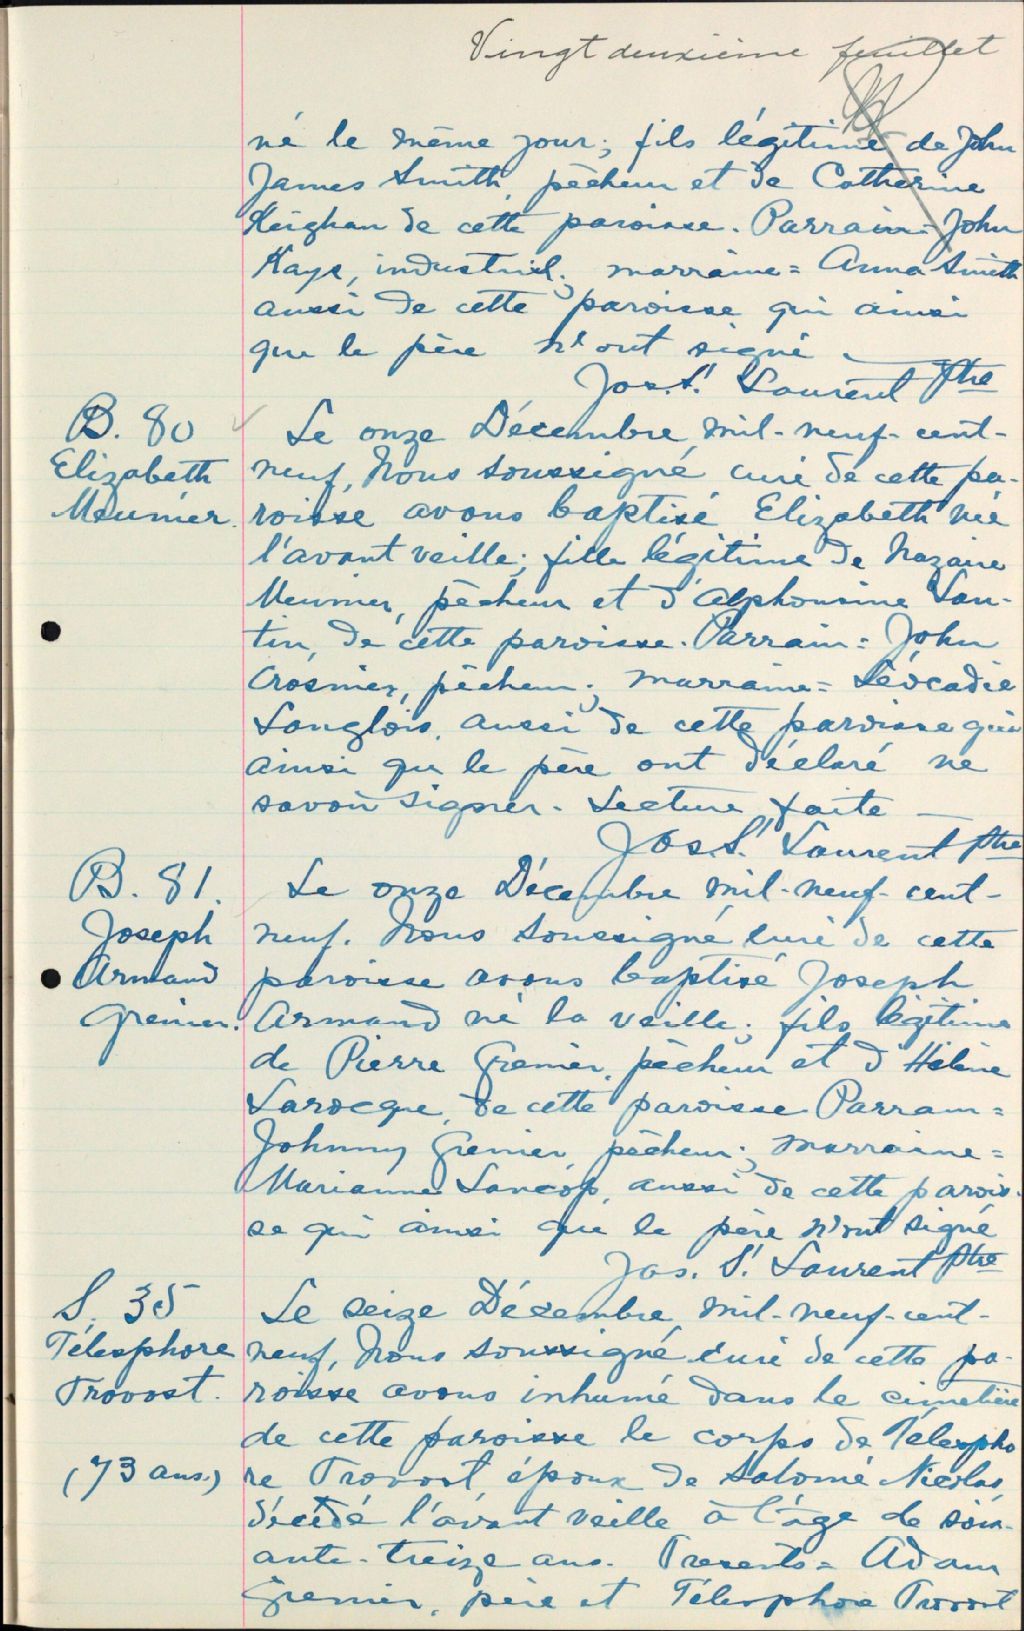 Vingt deuxième feuillet
né le même jour; fils légitime de John
James Smith, pêcheur et de Catherine
Keighan de cette paroisse. Parrain = John
Kays, industriel; marraine = Anna Smith
aussi de cette paroisse qui ainsi
que le père n'ont signé.
Jos. St Laurent Ptre
B. 80
Elizabeth
Meunier.
Le onze Décembre, mil-neuf-cent-
neuf, Nous soussigné curé de cette pa-
roisse avons baptisé Elizabeth née
l'avant veille; fille légitime de Nazaire
Meunier, pêcheur et d'Alphonsine Lan-
tin, de cette paroisse. Parrain = John
Crosnier, pêcheur; marraine = Léocadie
Langlois, aussi de cette paroisse qui
ainsi que le père ont déclaré ne
savoir signer. Lecture faite
Jos. St Laurent Ptre
B. 81.
Joseph
Armand
Grenier.
Le onze Décembre mil-neuf-cent-
neuf. Nous soussigné curé de cette
paroisse avons baptisé Joseph
Armand né la veille; fils légitime
de Pierre Grenier, pêcheur et d'Hélène
Larocque, de cette paroisse. Parrain =
Johnny Grenier, pêcheur; marraine =
Marianne Lancop, aussi de cette parois-
se qui ainsi que le père n'ont signé
Jos. St Laurent Ptre
S. 35
Télesphore
Trovost.
(73 ans.)
Le seize Décembre, mil-neuf-cent-
neuf, Nous soussigné curé de cette pa-
roisse avons inhumé dans le cimetière
de cette paroisse le corps de Télespho
re Trovost, époux de Salomé Nicolas,
décédé l'avant veille à l'âge de soix-
ante-treize ans. Presents = Adam
Grenier, père et Télesphore Trovost